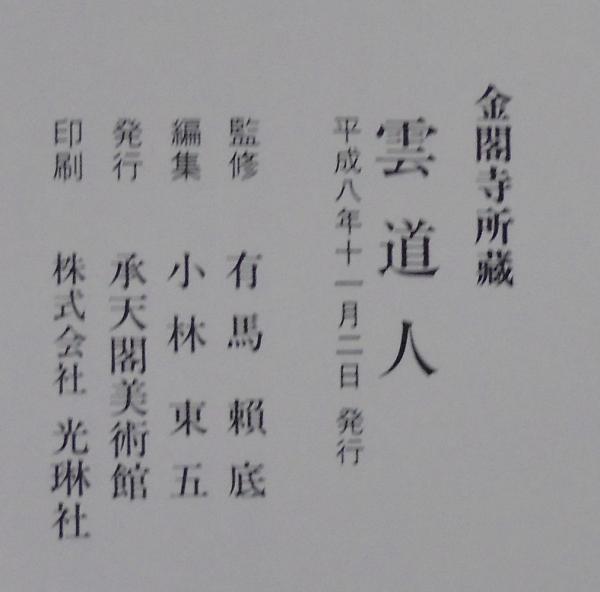 金閣寺所藏
雲道人
平成八年十一月二日 発行
監修 有馬賴底
編集 小林東五
発行 承天閣美術館
印刷 株式会社 光琳社